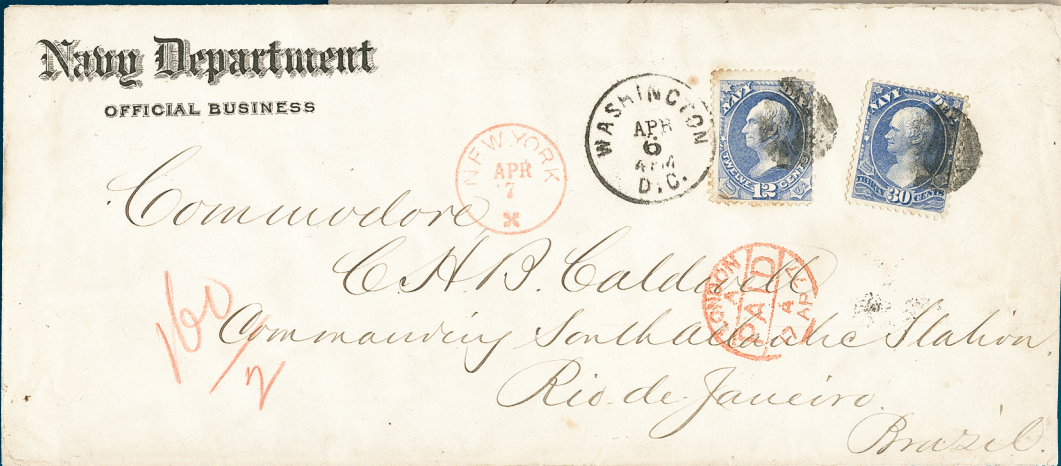 Navy Department
OFFICIAL BUSINESS
WASHINGTON
APR
6
4 PM
D.C.
NEW YORK
APR
7
NAVY DEPT
TWELVE 12 CENTS
NAVY DEPT
THIRTY 30 CENTS
Commodore
C H B Caldwell
Commanding South Atlantic Station
Rio de Janeiro
Brazil.
LONDON
PAID
AP
160/2